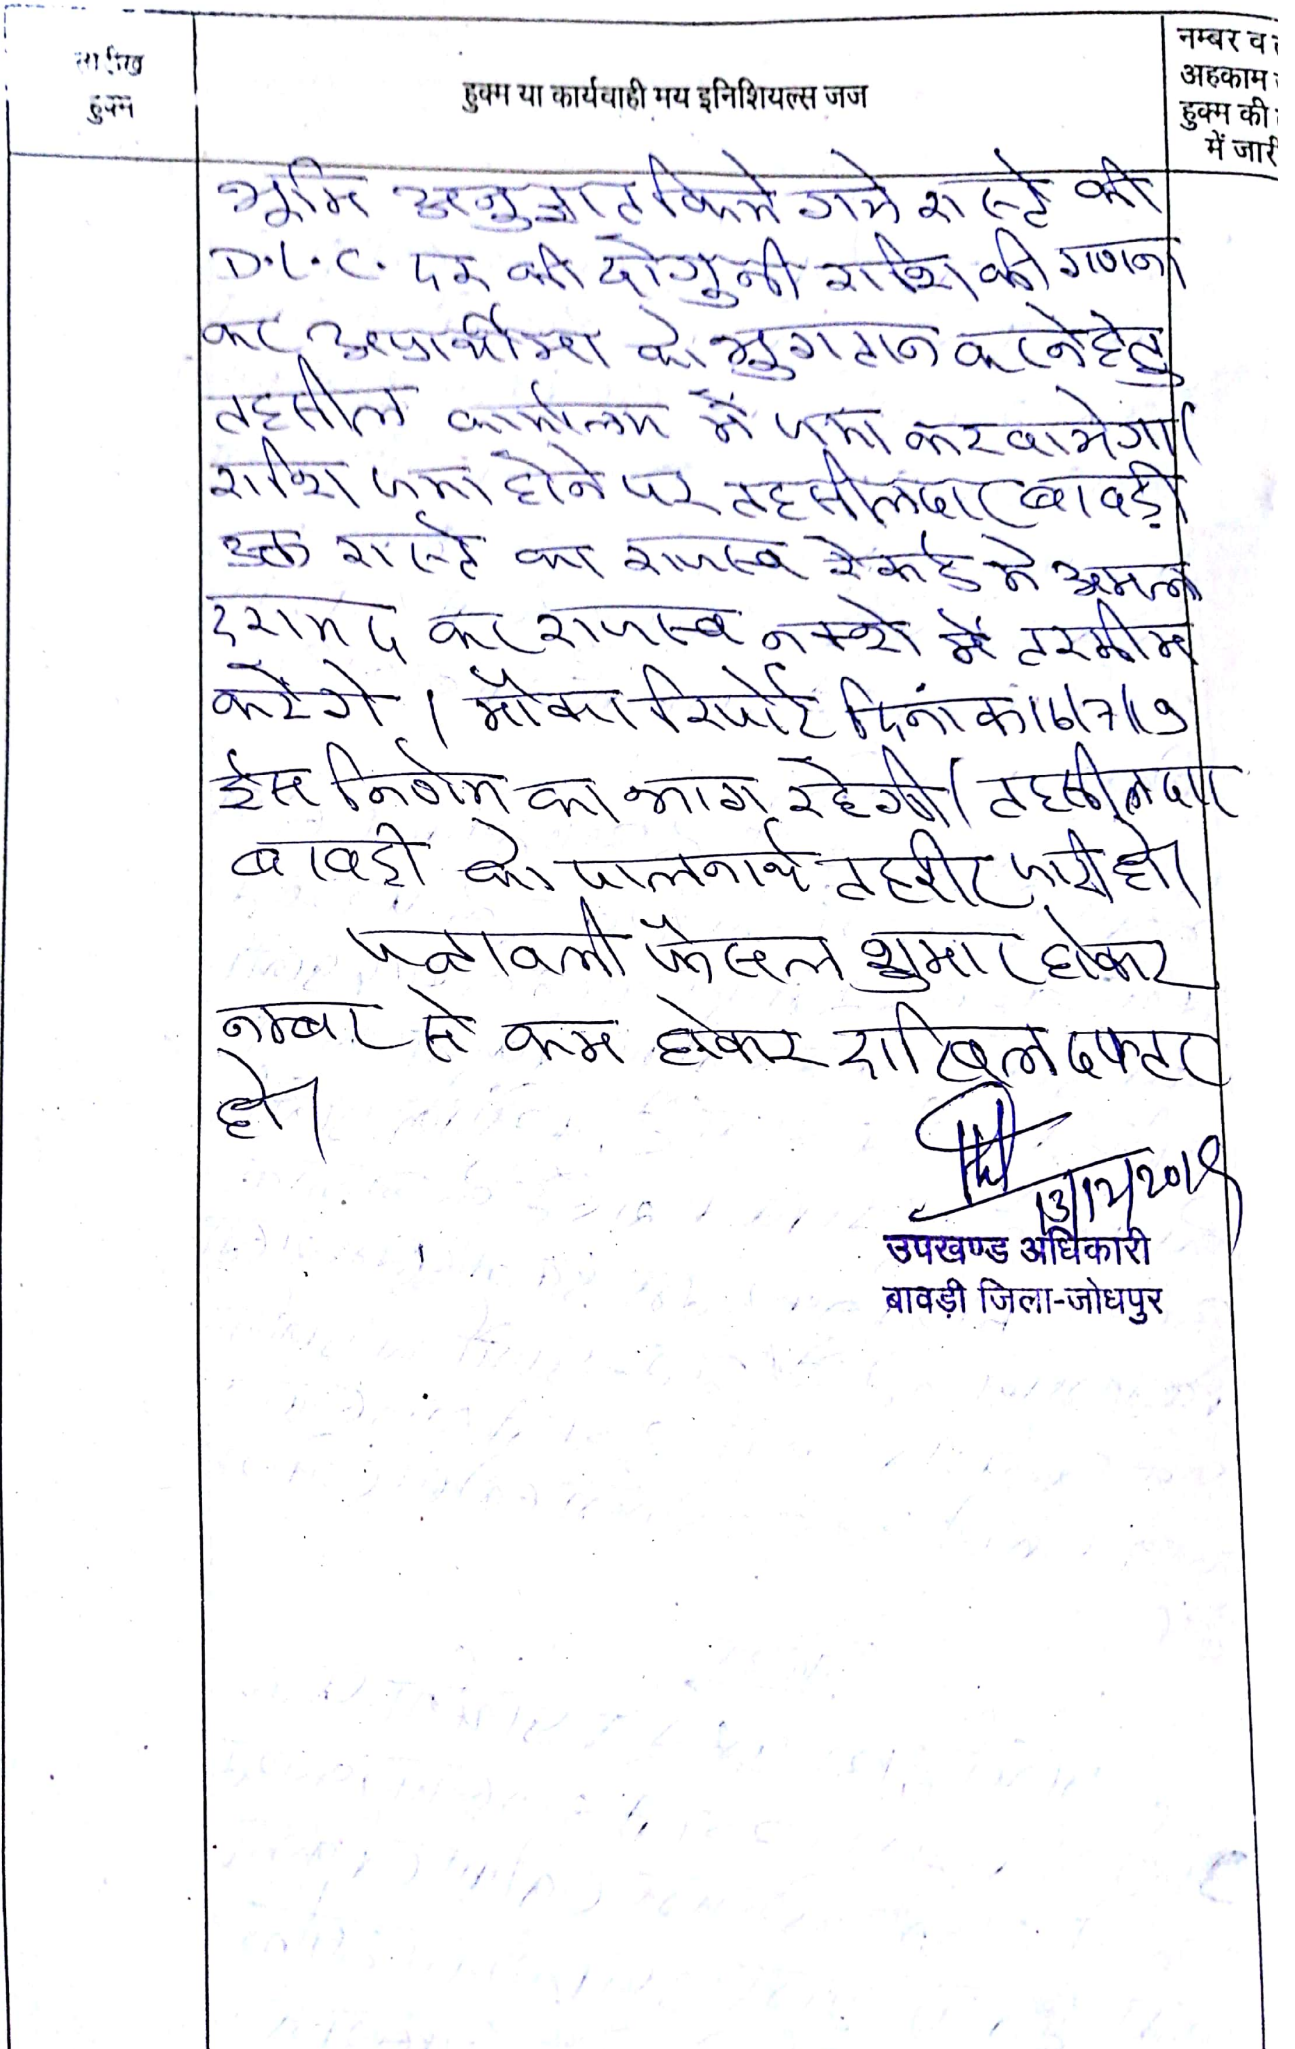 तारीख
हुक्म
हुक्म या कार्यवाही मय इनिशियल्स जज
नम्बर व
अहकाम
हुक्म की
में जारी
भूमि अनुज्ञात किये गये रास्ते की
D.L.C. दर की दोगुनी राशि की गणना
कर अप्रार्थीगण को भुगतान करने हेतु
तहसील कार्यालय में जमा करवायेगा।
राशि जमा होने पर तहसीलदार बावड़ी
उक्त रास्ते का राजस्व रेकर्ड मे अमल
दरामद कर राजस्व नक्शे में तरमीम
करेंगे। मौका रिपोर्ट दिनांक 16/7/19
ईस निर्णय का भाग रहेगी। तहसीलदार
बावड़ी को पालनार्थ तहरीर जारी हो।
पत्रावली फैसल शुमार होकर
नम्बर से कम होकर दाखिल दफ्तर
हो।
13/12/2019
उपखण्ड अधिकारी
बावड़ी जिला-जोधपुर